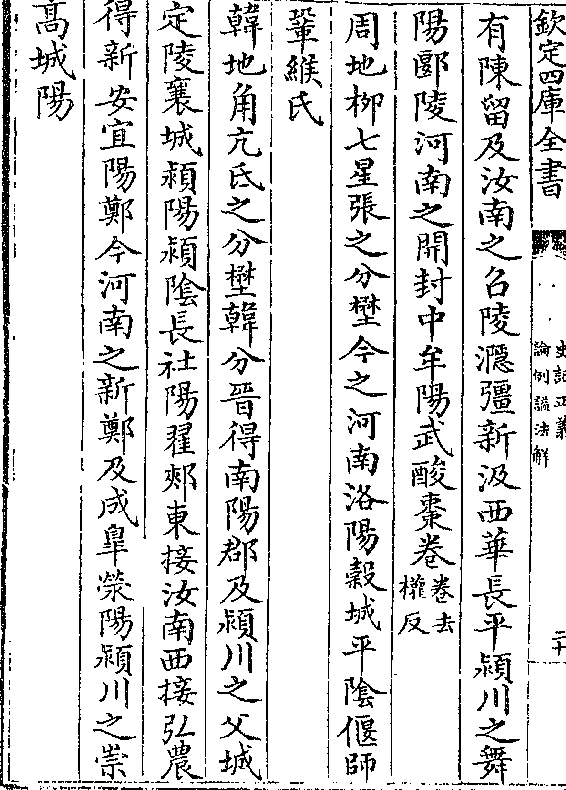 欽定四庫全書
史記正義
論例諡法解
二十
有陳留及汝南之召陵㶏彊新汲西華長平潁川之舞
陽郾陵河南之開封中牟陽武酸棗卷卷去權反
周地柳七星張之分壄今之河南洛陽榖城平隂偃師
鞏緱氏
韓地角亢氐之分壄韓分晉得南陽郡及潁川之父城
定陵襄城潁陽潁隂長社陽翟郟東接汝南西接弘農
得新安宜陽鄭今河南之新鄭及成臯滎陽潁川之崇
髙城陽